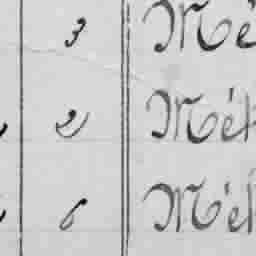 3 Mé
2 Mék
6 Mék